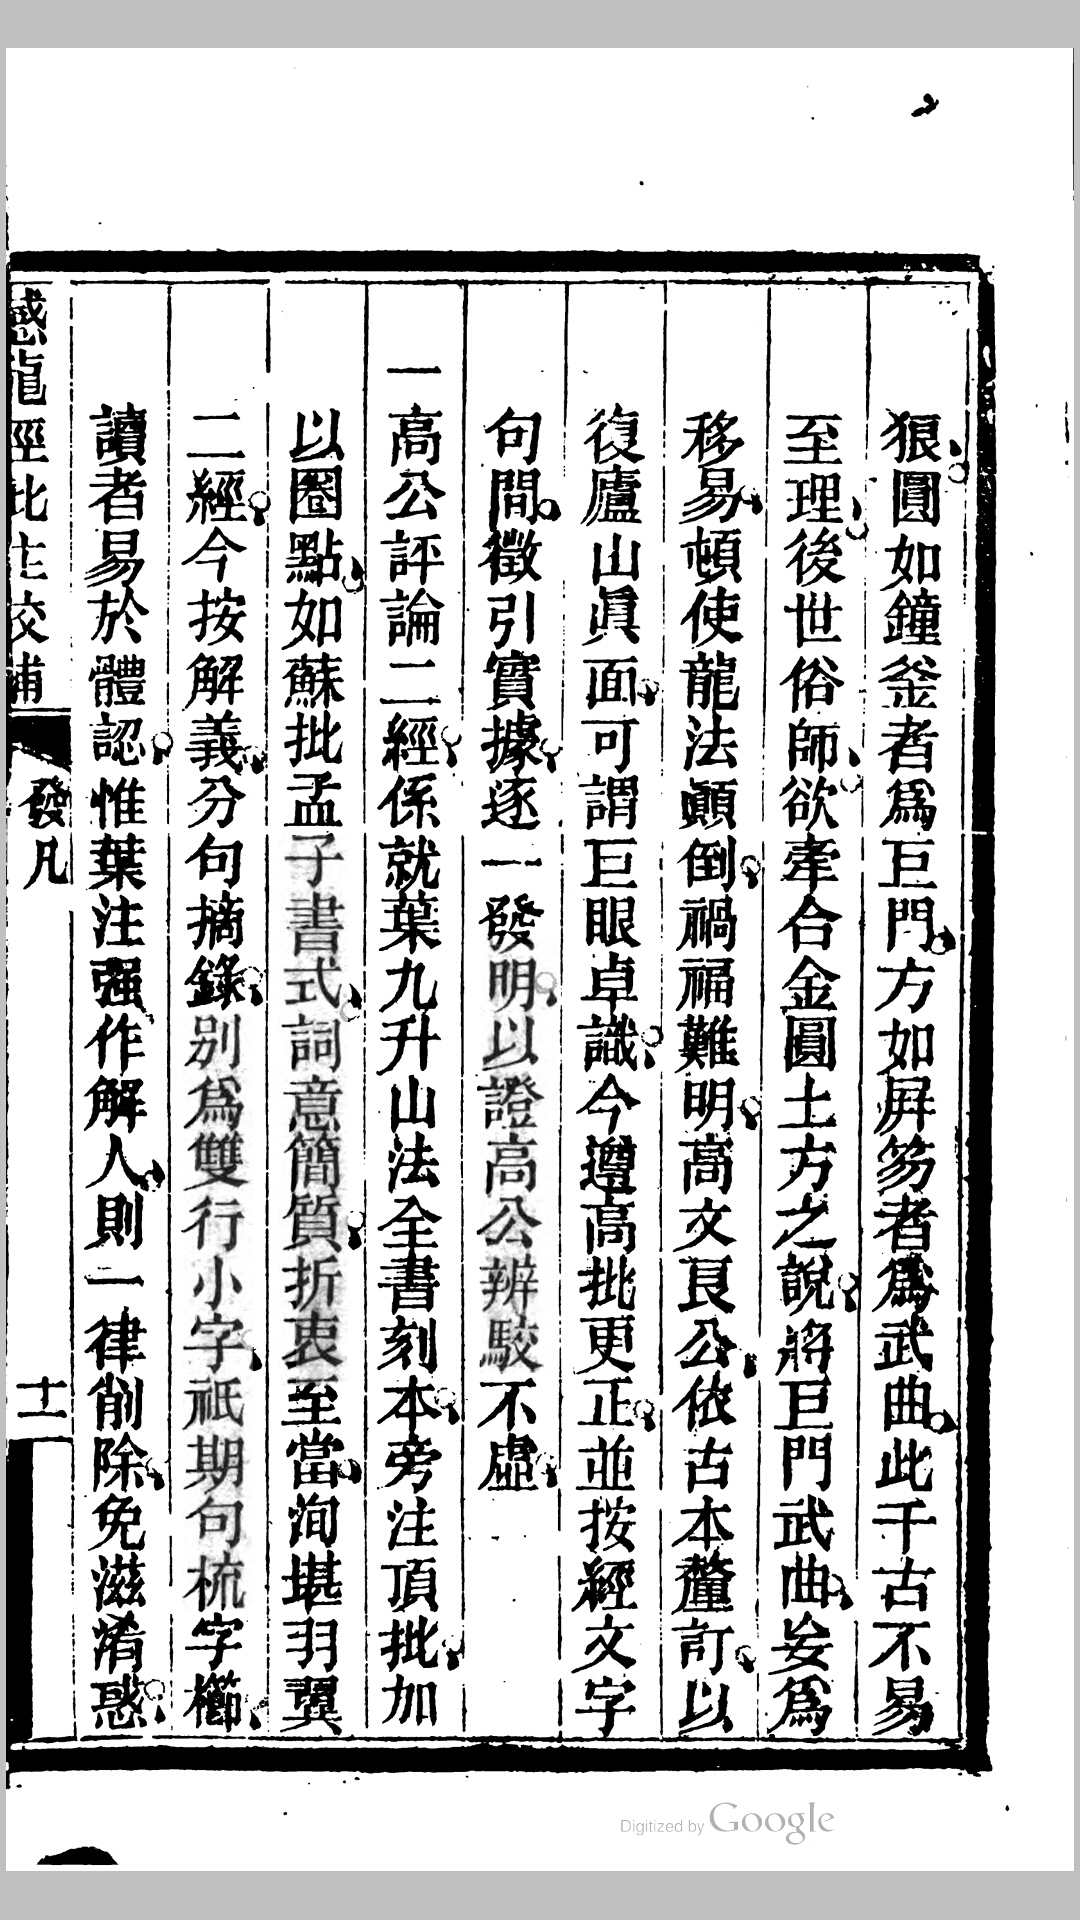 狠圓如鐘釜者爲巨門方如屛笏者爲武曲此千古不易
至理後世俗師欲牽合金圓土方之說將巨門武曲妄爲
移易頓使龍法顚倒禍福難明高文良公依古本釐訂以
復廬山眞面可謂巨眼卓識今遵高批更正並按經文字
句間徵引實據逐一發明以證高公辨駮不虛
一高公評論二經係就葉九升山法全書刻本旁注頂批加
以圈點如蘇批孟子書式詞意簡質折衷至當洵堪羽翼
二經今按解義分句摘錄別爲雙行小字祇期句梳字櫛
讀者易於體認惟葉注强作解人則一律削除免滋淆惑
龍經批注校補
發凡
十一
Digitized by Google